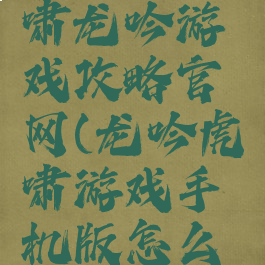 啸龙吟游
戏攻略官
网(龙吟虎
啸游戏手
机版怎么